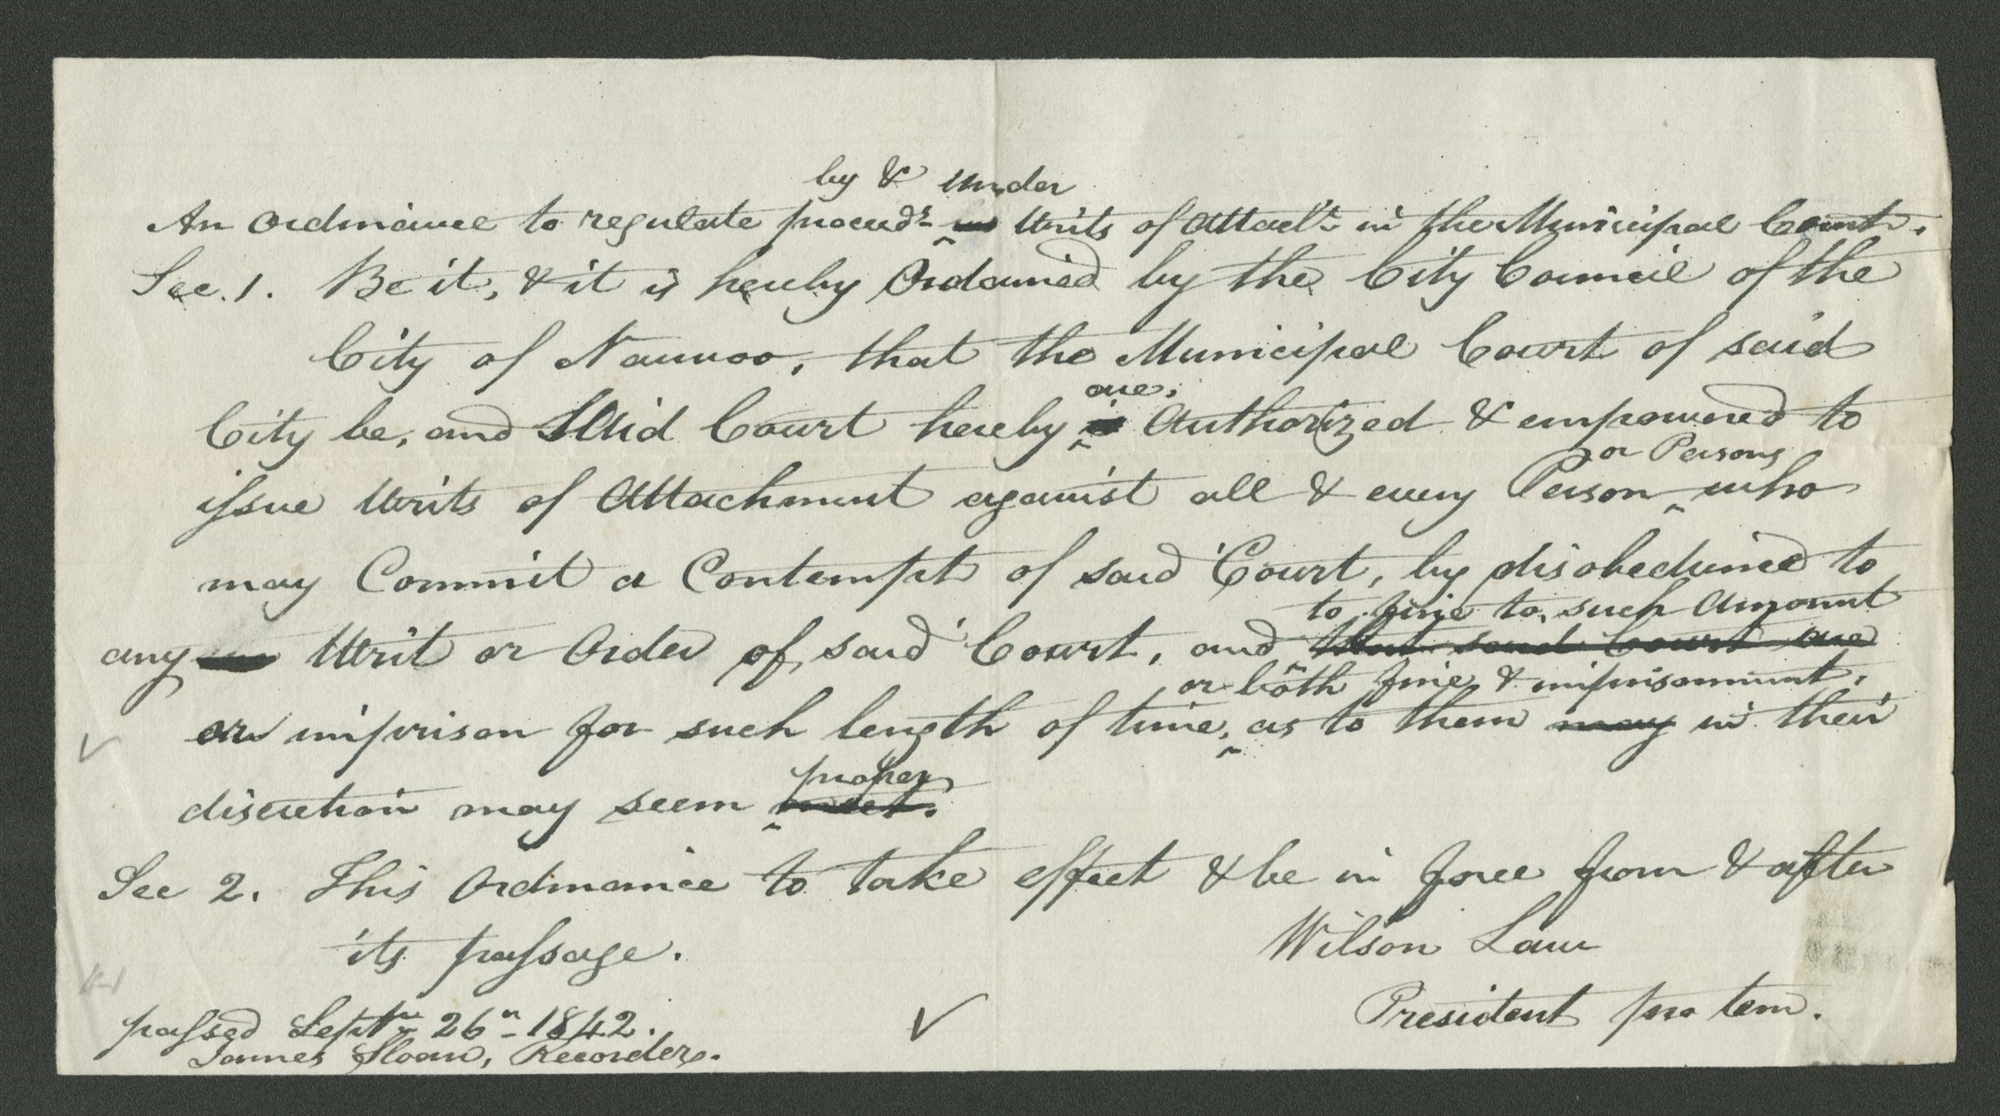 by & under
An Ordinance to regulate proceeds. in Writs of Attacht. in the Municipal Court.
Sec. 1. Be it, & it is hereby Ordained by the City Council of the
City of Nauvoo, that the Municipal Court of said
are,
City be, and Said Court hereby is Authorized & empowered to
or Persons
issue Writs of Attachment against all & every Person who
may Commit a Contempt of said Court, by disobedience to
to fine to such Amount
any Writ or Order of said Court, and that said Court are
or both fine & imprisonment,
or imprison for such length of time, as to them may in their
proper
discretion may seem meet.
Sec 2. This Ordinance to take effect & be in force from & after
its passage.
Wilson Law
President pro tem.
passed Septr. 26th. 1842.
James Sloan, Recorder.